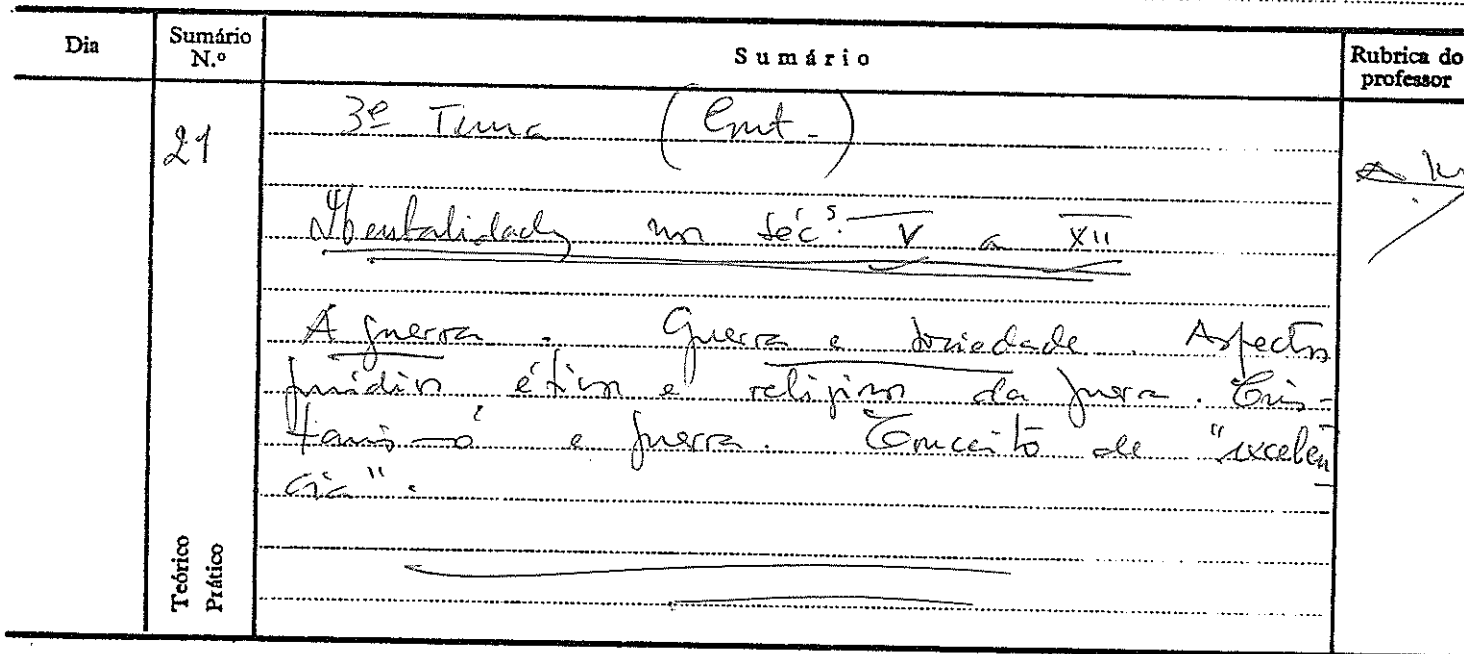 Dia
Sumário N.º
Sumário
Rubrica do professor
21
3º Tema (Cont.)
Mentalidades nos séc.s V a XII
A guerra. Guerra e sociedade. Aspectos
jurídicos éticos e religiosos da guerra. Cris-
tianismo e guerra. Conceito de "excelên
cia".
Teórico
Prático